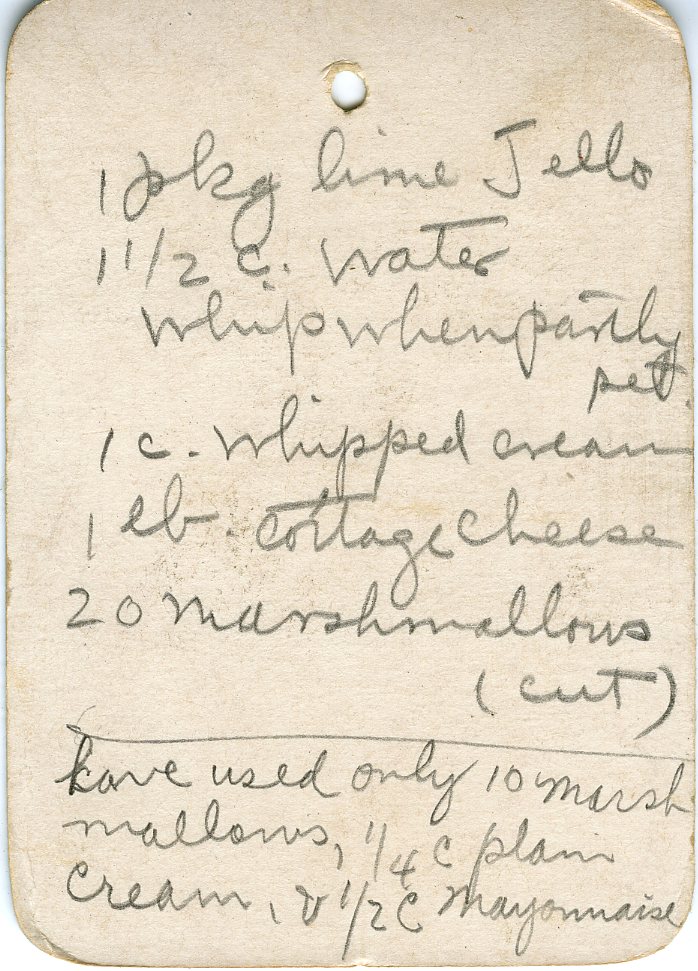 1 pkg lime Jello
1 1/2 c. water
whip when partly
set.
1 c. whipped cream
1 lb. cottage cheese
20 marshmallows
(cut)
have used only 10 marsh
mallows, 1/4 c plain
cream, & 1/2 c mayonnaise